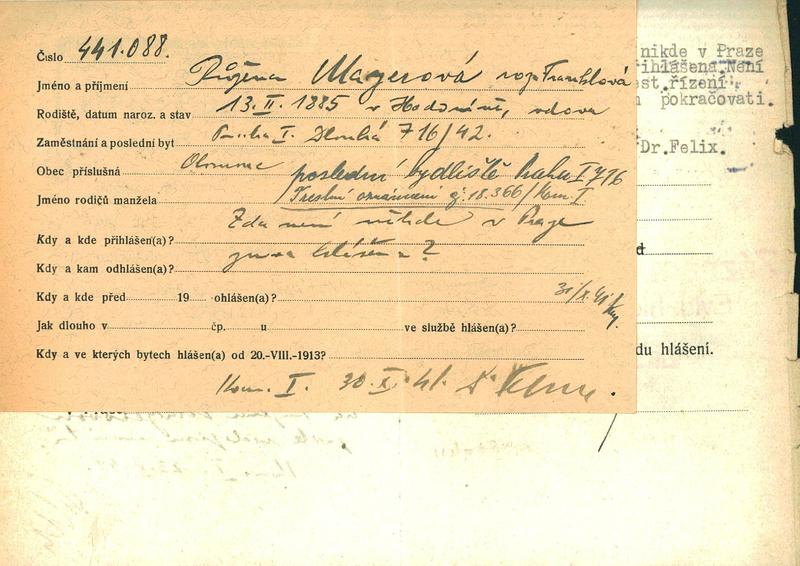 Číslo 441.088.
Jméno a příjmení Růžena Mayerová roz. Franklová
Rodiště, datum naroz. a stav 13. II. 1885 v Hodoníně, vdova
Zaměstnání a poslední byt Praha I. Dlouhá 716/42.
Obec příslušná Olomouc poslední bydliště Praha I 716
Jméno rodičů manžela Trestní oznámení čj. 18.366/Kom. I.
Zda není nikde v Praze
Kdy a kde přihlášen(a)?
Kdy a kam odhlášen(a)? hlášena?
Kdy a kde před 19 ohlášen(a)? 31/X.41
Jak dlouho v čp. u ve službě hlášen(a)?
Kdy a ve kterých bytech hlášen(a) od 20.-VIII.-1913?
Kom. I. 30. X. 41. Dr
nikde v Praze
řihlášena. Není
est. řízení
pokračovati.
Dr. Felix.
du hlášení.